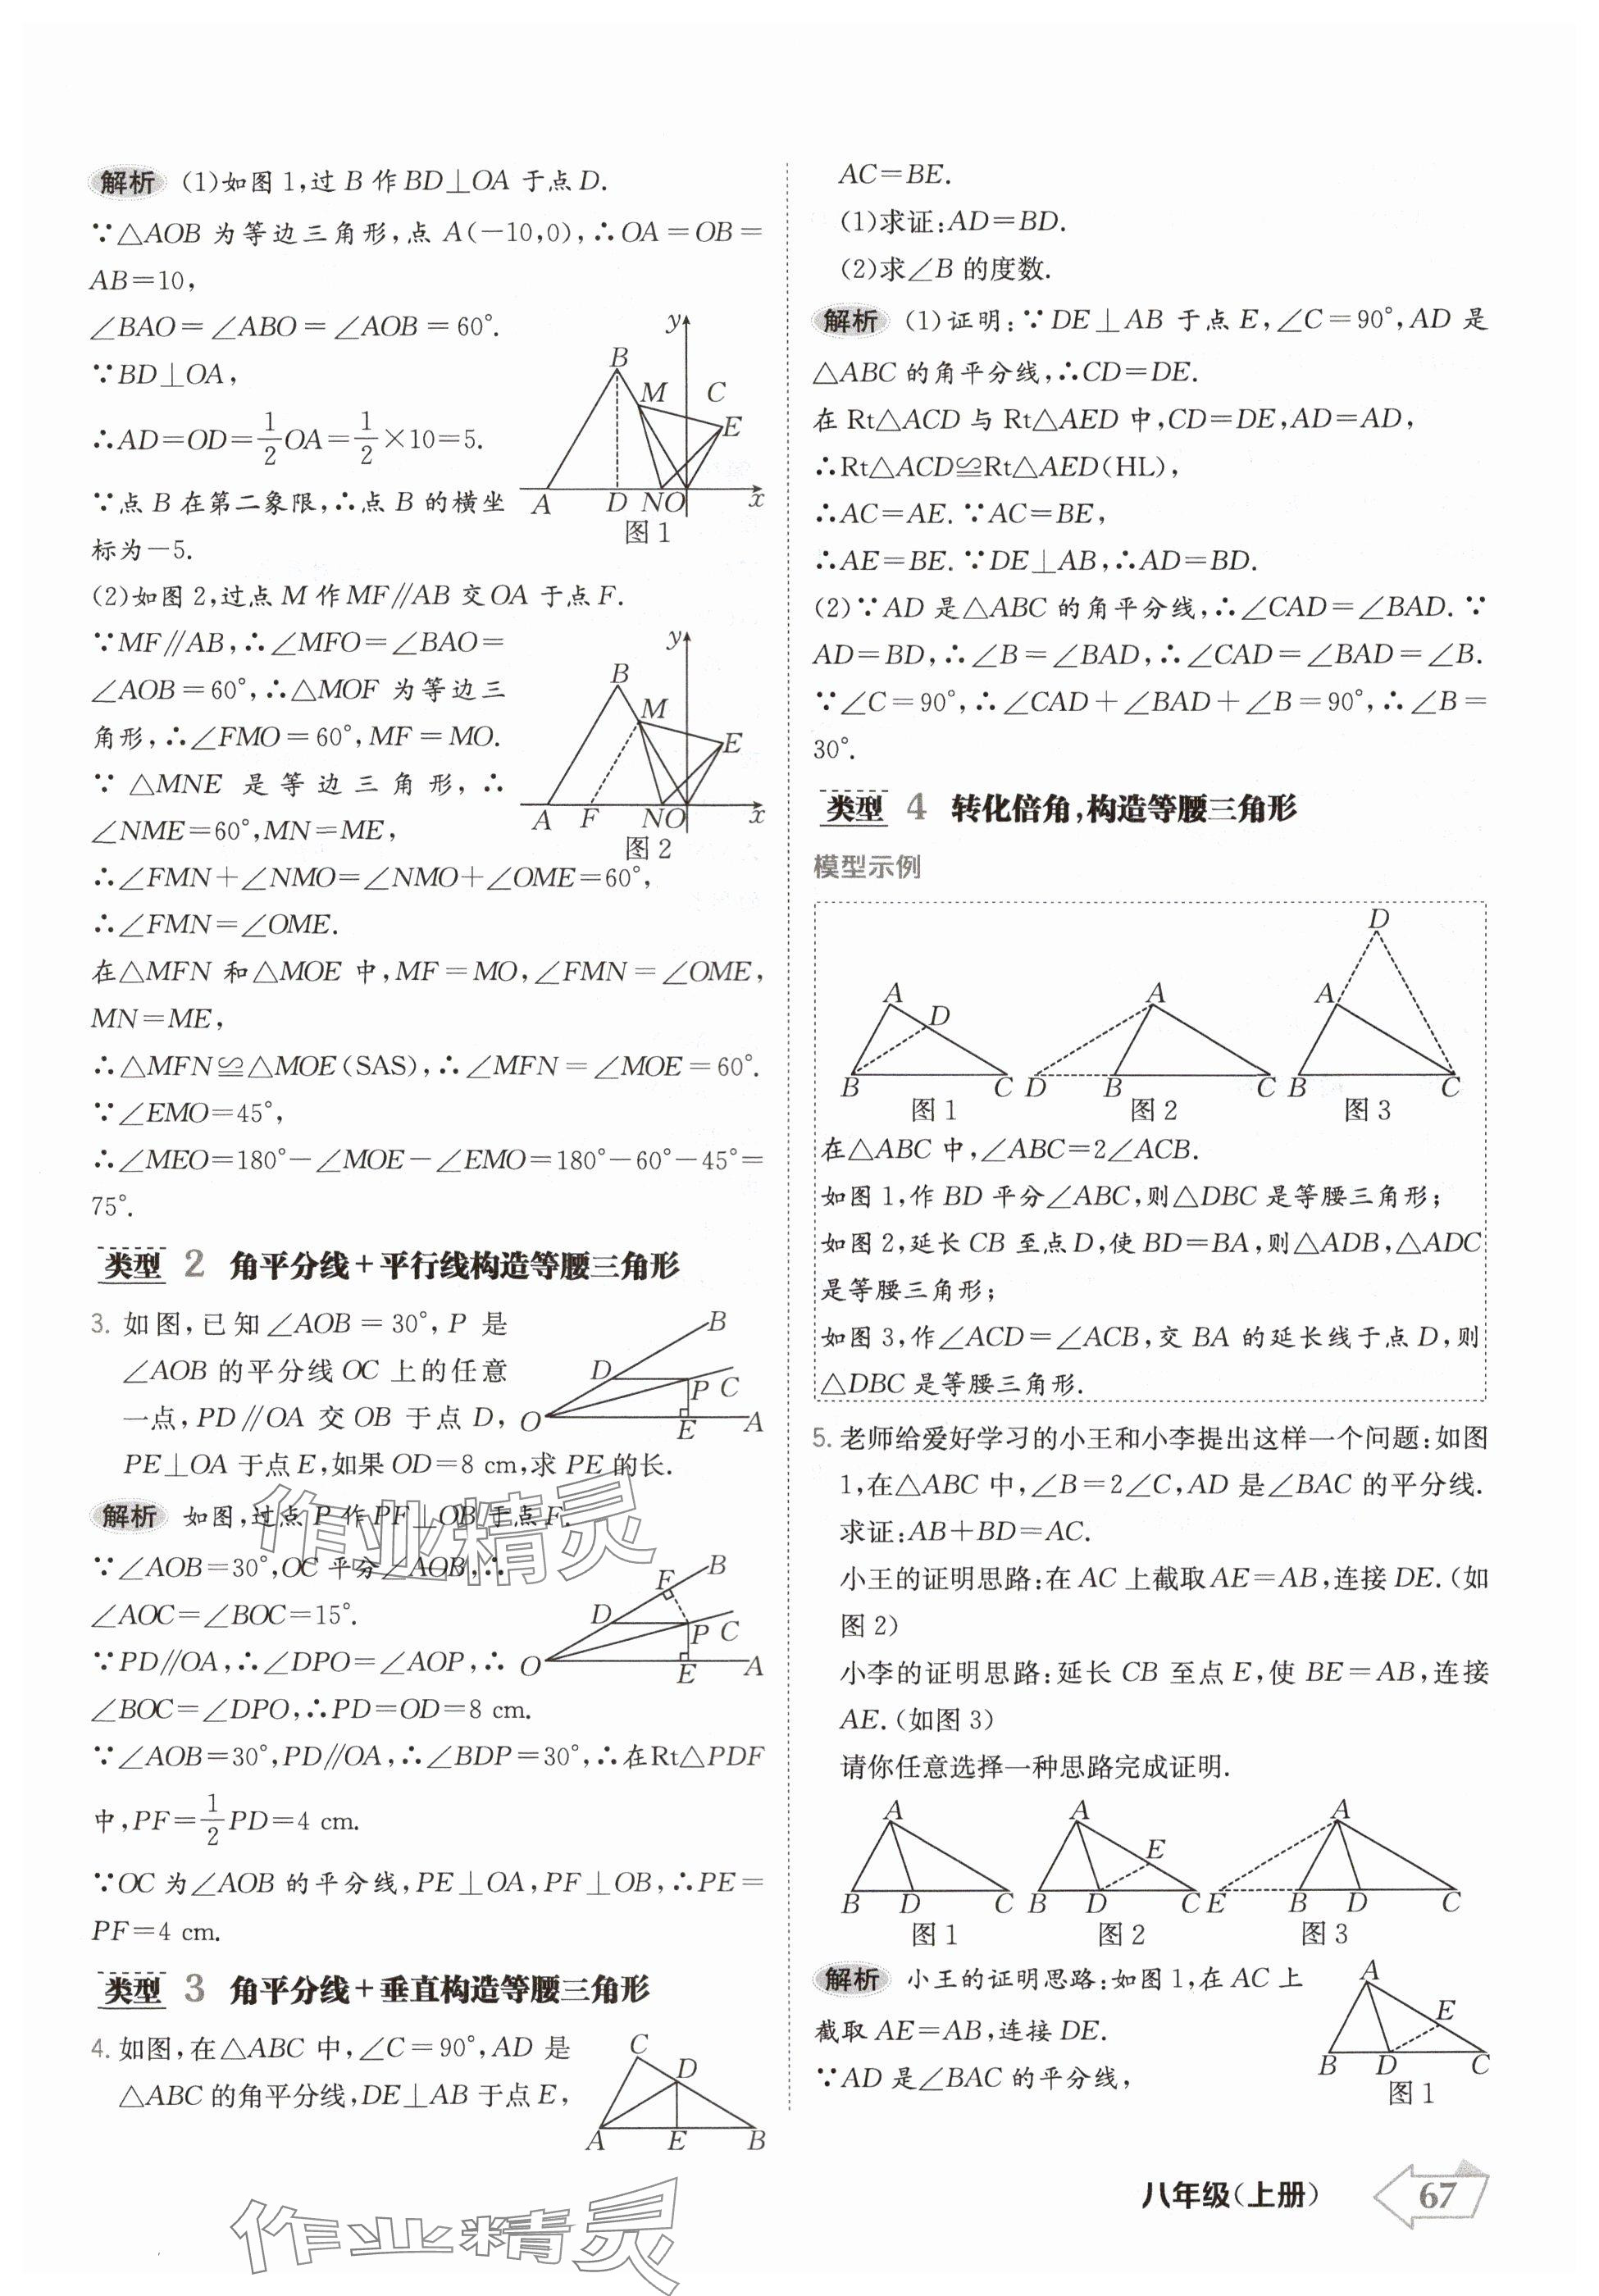 解析 (1)如图1,过B作BD⊥OA于点D.
∵△AOB为等边三角形,点A(-10,0),∴OA=OB=
AB=10,
∠BAO=∠ABO=∠AOB=60°.
∵BD⊥OA,
∴AD=OD=1/2OA=1/2×10=5.
∵点B在第二象限,∴点B的横坐
标为-5.
y
B
M C
E
A D NO x
图1
(2)如图2,过点M作MF∥AB交OA于点F.
∵MF∥AB,∴∠MFO=∠BAO=
∠AOB=60°,∴△MOF为等边三
角形,∴∠FMO=60°,MF=MO.
∵△MNE是等边三角形,∴
∠NME=60°,MN=ME,
y
B
M
E
A F NO x
图2
∴∠FMN+∠NMO=∠NMO+∠OME=60°,
∴∠FMN=∠OME.
在△MFN和△MOE中,MF=MO,∠FMN=∠OME,
MN=ME,
∴△MFN≌△MOE(SAS),∴∠MFN=∠MOE=60°.
∵∠EMO=45°,
∴∠MEO=180°-∠MOE-∠EMO=180°-60°-45°=
75°.
类型 2 角平分线+平行线构造等腰三角形
3. 如图,已知∠AOB=30°,P是
∠AOB的平分线OC上的任意
一点,PD∥OA交OB于点D,
PE⊥OA于点E,如果OD=8 cm,求PE的长.
B
D
P C
O E A
解析 如图,过点P作PF⊥OB于点F.
∵∠AOB=30°,OC平分∠AOB,∴
∠AOC=∠BOC=15°.
∵PD∥OA,∴∠DPO=∠AOP,∴
∠BOC=∠DPO,∴PD=OD=8 cm.
F B
D
P C
O E A
∵∠AOB=30°,PD∥OA,∴∠BDP=30°,∴在Rt△PDF
中,PF=1/2PD=4 cm.
∵OC为∠AOB的平分线,PE⊥OA,PF⊥OB,∴PE=
PF=4 cm.
类型 3 角平分线+垂直构造等腰三角形
4. 如图,在△ABC中,∠C=90°,AD是
△ABC的角平分线,DE⊥AB于点E,
C
D
A E B
AC=BE.
(1)求证:AD=BD.
(2)求∠B的度数.
解析 (1)证明:∵DE⊥AB于点E,∠C=90°,AD是
△ABC的角平分线,∴CD=DE.
在Rt△ACD与Rt△AED中,CD=DE,AD=AD,
∴Rt△ACD≌Rt△AED(HL),
∴AC=AE. ∵AC=BE,
∴AE=BE. ∵DE⊥AB,∴AD=BD.
(2)∵AD是△ABC的角平分线,∴∠CAD=∠BAD. ∵
AD=BD,∴∠B=∠BAD,∴∠CAD=∠BAD=∠B.
∵∠C=90°,∴∠CAD+∠BAD+∠B=90°,∴∠B=
30°.
类型 4 转化倍角,构造等腰三角形
模型示例
D
A D A A
B C D B C B C
图1 图2 图3
在△ABC中,∠ABC=2∠ACB.
如图1,作BD平分∠ABC,则△DBC是等腰三角形;
如图2,延长CB至点D,使BD=BA,则△ADB,△ADC
是等腰三角形;
如图3,作∠ACD=∠ACB,交BA的延长线于点D,则
△DBC是等腰三角形.
5. 老师给爱好学习的小王和小李提出这样一个问题:如图
1,在△ABC中,∠B=2∠C,AD是∠BAC的平分线.
求证:AB+BD=AC.
小王的证明思路:在AC上截取AE=AB,连接DE.(如
图2)
小李的证明思路:延长CB至点E,使BE=AB,连接
AE.(如图3)
请你任意选择一种思路完成证明.
A A A
E
B D C B D C E B D C
图1 图2 图3
解析 小王的证明思路:如图1,在AC上
截取AE=AB,连接DE.
∵AD是∠BAC的平分线,
A
E
B D C
图1
八年级(上册) 67
作业精灵
作业精灵